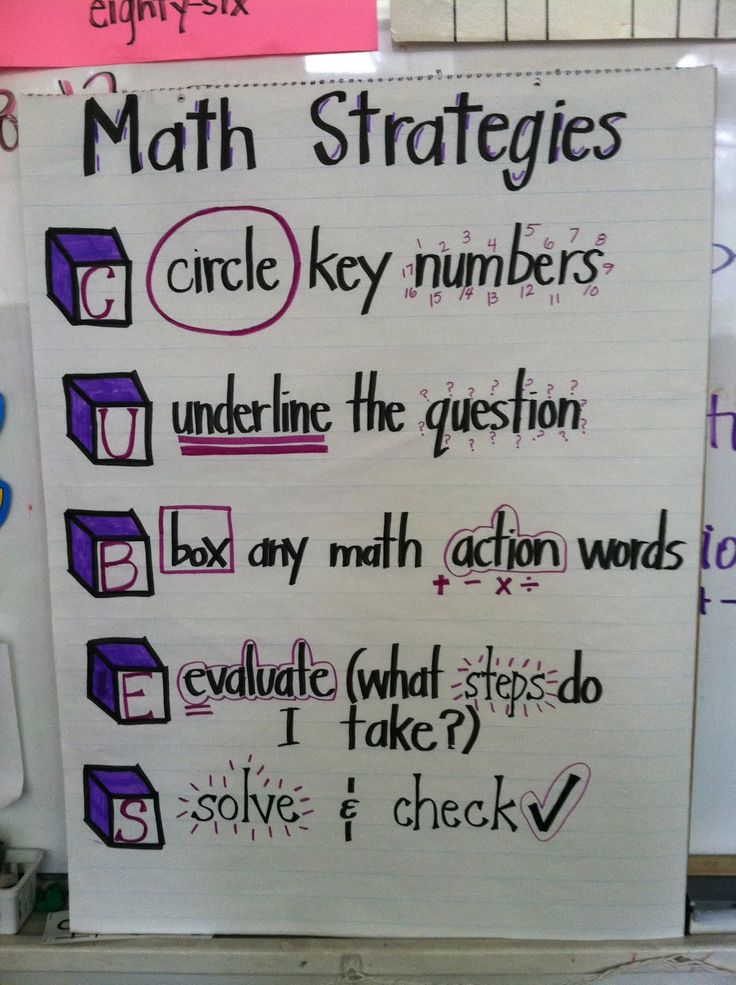 eighty-six
Math Strategies
C circle key numbers
1 2 3 4 5 6 7 8 9 10 11 12 13 14 15 16 17
U underline the question
? ? ? ? ? ? ? ? ? ? ? ? ? ?
B box any math action words
+ - x ÷
E evaluate (what steps do
I take?)
S solve & check ✓